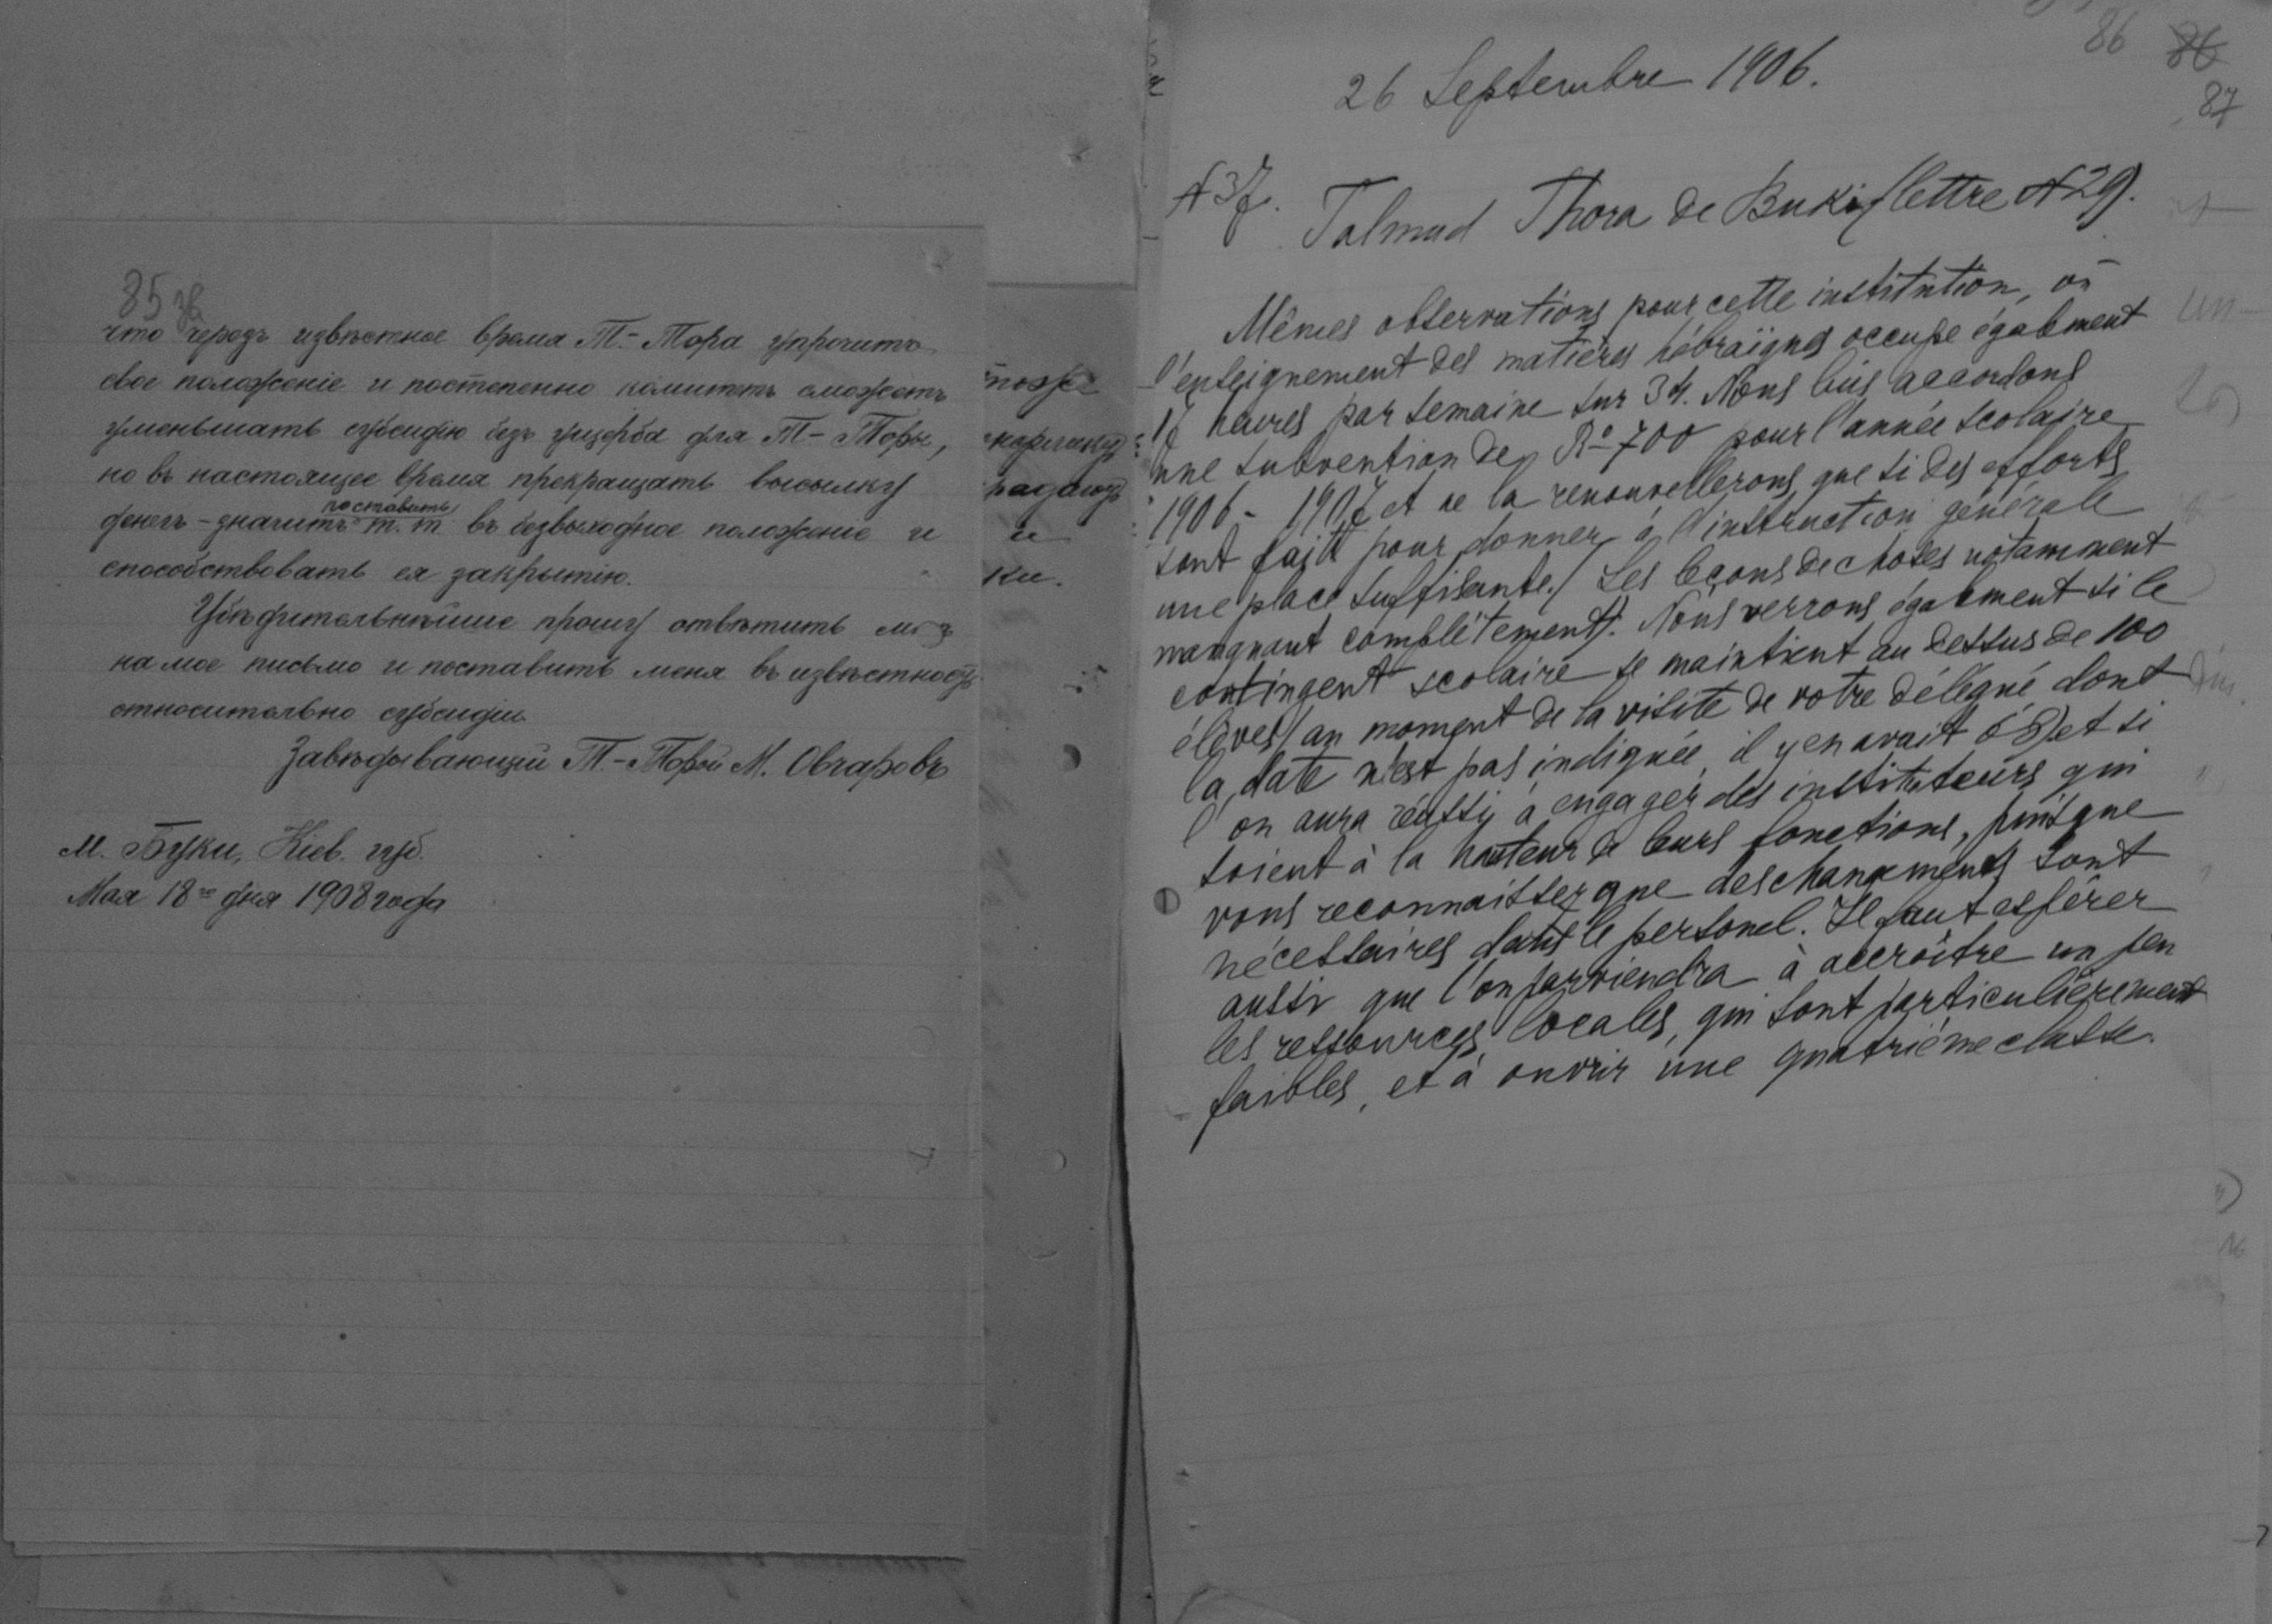 85 зв
что черезъ извѣстное время Т.-Тора упрочитъ
свое положеніе и постепенно комитетъ сможетъ
уменьшать субсидію безъ ущерба для Т-Торы,
но въ настоящее время прекращать высылку
поставить
денегъ - значитъ т. т. въ безвыходное положеніе и
способствовать ея закрытію.
Убѣдительнѣйше прошу отвѣтить мнѣ
на мое письмо и поставить меня въ извѣстность
относительно субсидіи.
Завѣдывающій Т.-Торой М. Овчаровъ
М. Буки, Кіев. губ.
Мая 18го дня 1908 года
и
ки.
86 86
87
26 Septembre 1906.
N 37. Talmud Thora de Buki (lettre N 29).
Mêmes observations pour cette institution, où
l'enseignement des matières hébraïques occupe également
17 heures par semaine sur 34. Nous lui accordons
une subvention de Ro 700 pour l'année scolaire
1906 - 1907 et ne la renouvellerons que si des efforts
sont faits pour donner à l'instruction générale
une place suffisante. (Les leçons de choses notamment
manquant complètement). Nous verrons également si le
contingent scolaire se maintient au dessus de 100
élèves (au moment de la visite de votre délégué dont
la date n'est pas indiquée, il y en avait 68) et si
l'on aura réussi à engager des instituteurs qui
soient à la hauteur de leurs fonctions, puisque
vous reconnaissez que des changements sont
nécessaires dans le personel. Il faut espérer
aussi que l'on parviendra à accroître un peu
les ressources locales, qui sont particulièrement
faibles, et à ouvrir une quatrième classe.